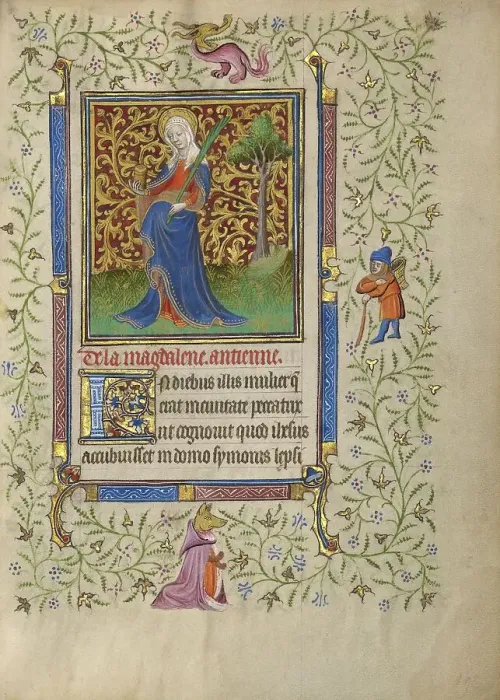 De la magdalene. antienne.
In diebus illis mulier q̄
erat in ciuitate peccatrix
ut cognouit quod ihesus
accubuisset in domo symonis lepsi